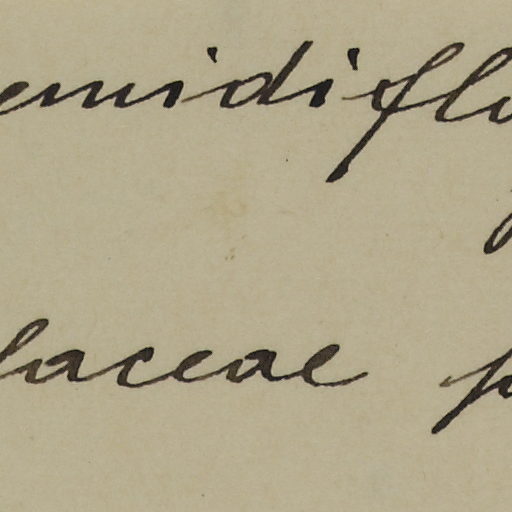 emidiflo
laceae p